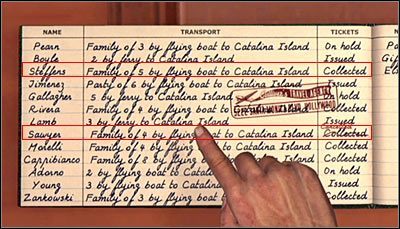 NAME TRANSPORT TICKETS
Pearn Family of 3 by flying boat to Catalina Island On hold
Boyle 2 by ferry to Catalina Island Issued
Steffens Family of 5 by flying boat to Catalina Island Collected
Jimenez Party of 6 by flying boat to Catalina Issued
Gallagher 5 by ferry to Catalina On hold
Rivera Family of 4 by flying Collected
Lamb 3 by ferry to Catalina Island Issued
Sawyer Family of 4 by flying boat to Catalina Island Collected
Morelli Family of 4 by flying boat to Catalina Island Collected
Cappibianco Family of 8 by flying to Catalina Island Collected
Adorno 2 by flying boat to Cata Island On hold
Young 3 by flying boat to Catalina Island Issued
Zankowski Family of 3 by flying boat to Island Collected